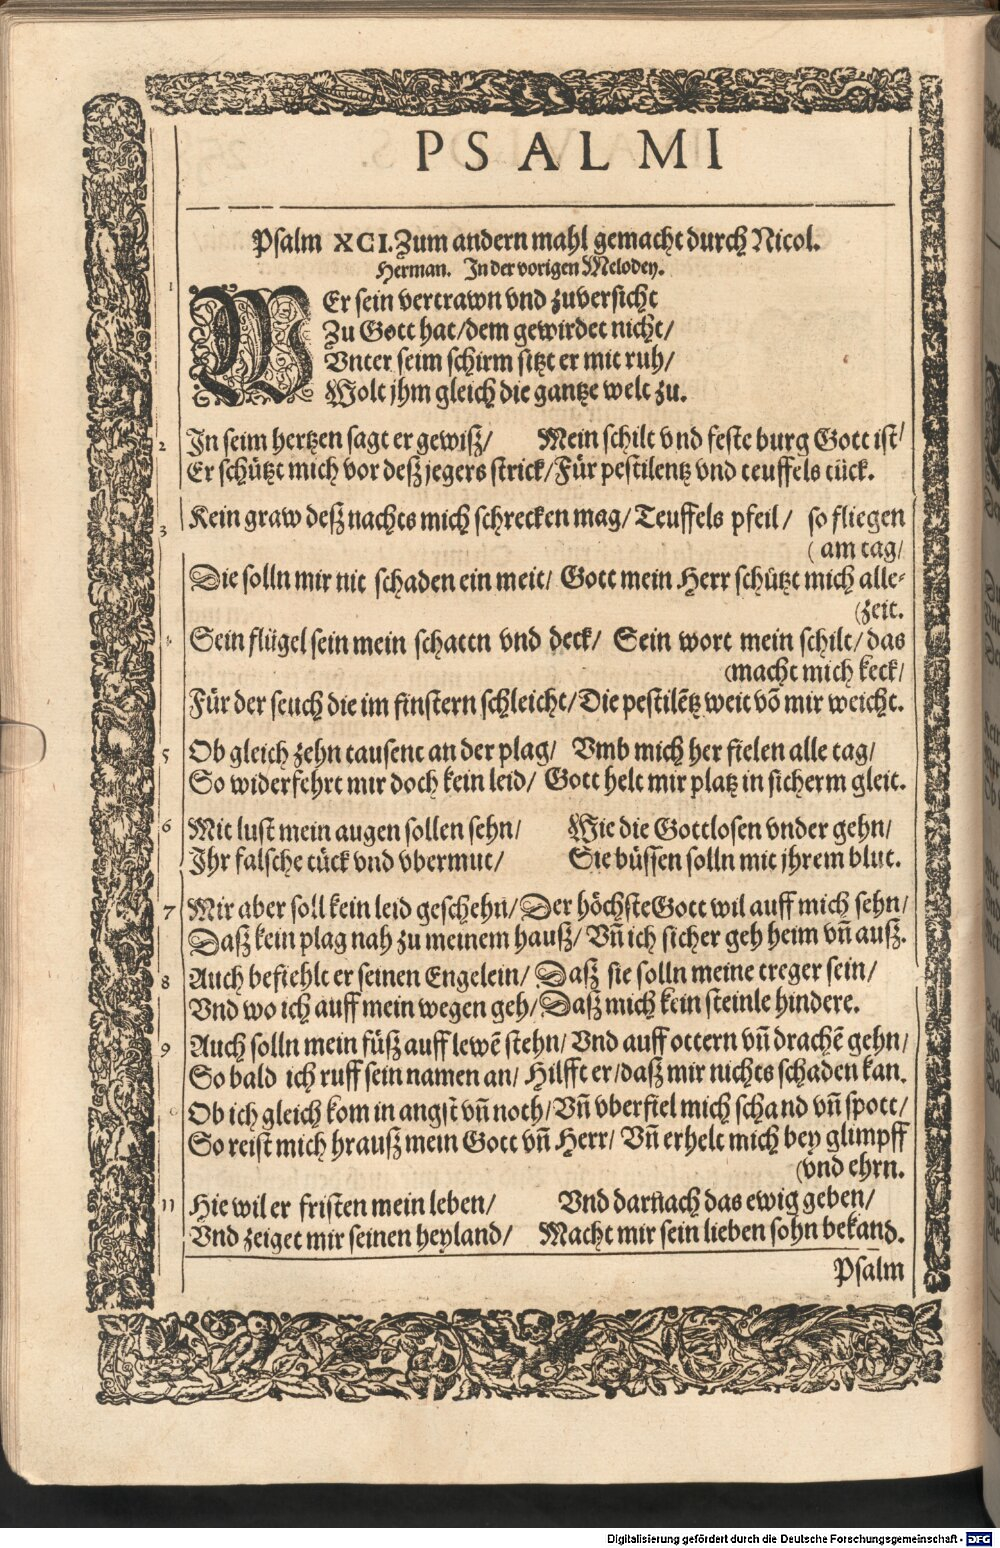 PSALMI
Psalm XCI. Zum andern mahl gemacht durch Nicol.
Herman. In der vorigen Melodey.
1 WEr sein vertrawn vnd zuversicht
Zu Gott hat/dem gewirdet nicht/
Vnter seim schirm sitzt er mit ruh/
Wolt jhm gleich die gantze welt zu.
2 In seim hertzen sagt er gewiß/ Mein schilt vnd feste burg Gott ist/
Er schützt mich vor deß jegers strick/Für pestilentz vnd teuffels tück.
3 Kein graw deß nachts mich schrecken mag/ Teuffels pfeil/ so fliegen
(am tag/
Die solln mir nit schaden ein meit/ Gott mein Herr schützt mich alle-
(zeit.
4 Sein flügel sein mein schattn vnd deck/ Sein wort mein schilt/ das
(macht mich keck/
Für der seuch die im finstern schleicht/Die pestilẽtz weit võ mir weicht.
5 Ob gleich zehn tausent an der plag/ Vmb mich her fielen alle tag/
So widerfehrt mir doch kein leid/ Gott helt mir platz in sicherm gleit.
6 Mit lust mein augen sollen sehn/ Wie die Gottlosen vnder gehn/
Ihr falsche tück vnd vbermut/ Sie büssen solln mit jhrem blut.
7 Mir aber soll kein leid geschehn/Der höchste Gott wil auff mich sehn/
Daß kein plag nah zu meinem hauß/ Vñ ich sicher geh heim vñ auß.
8 Auch befiehlt er seinen Engelein/ Daß sie solln meine treger sein/
Vnd wo ich auff mein wegen geh/Daß mich kein steinle hindere.
9 Auch solln mein füß auff lewẽ stehn/ Vnd auff ottern vñ drachẽ gehn/
So bald ich ruff sein namen an/ Hilfft er/daß mir nichts schaden kan.
Ob ich gleich kom in angst vñ noth/Vñ vberfiel mich schand vñ spott/
So reist mich hrauß mein Gott vñ Herr/ Vñ erhelt mich bey glimpff
(vnd ehrn.
11 Hie wil er fristen mein leben/ Vnd darnach das ewig geben/
Vnd zeiget mir seinen heyland/ Macht mir sein lieben sohn bekand.
Psalm
Digitalisierung gefördert durch die Deutsche Forschungsgemeinschaft - DFG